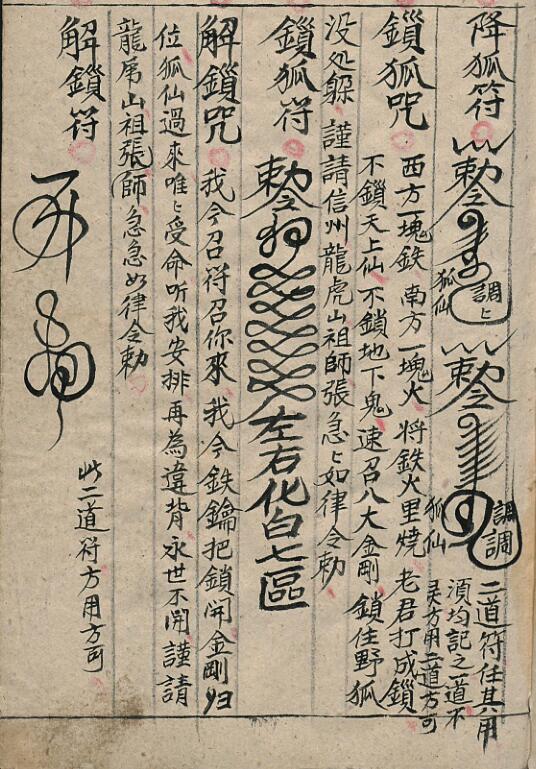 降狐符
勅令 調上狐仙
勅令 調調狐仙
二道符任其用
須均記之一道不
灵方用二道方可
鎖狐咒 西方一塊鉄 南方一塊火 将鉄火里燒 老君打成鎖
不鎖天上仙 不鎖地下鬼 速召八大金剛 鎖住野狐
没処躲 謹請信州龍虎山祖師張急〻如律令勅
鎖狐符 勅令 左右化白七區
解鎖咒 我今召符召你來 我今鉄鑰把鎖開 金剛归
位狐仙過來唯〻受命听我安排再為違背永世不開謹請
龍虎山祖張師急急如律令勅
解鎖符
此二道符方用方可